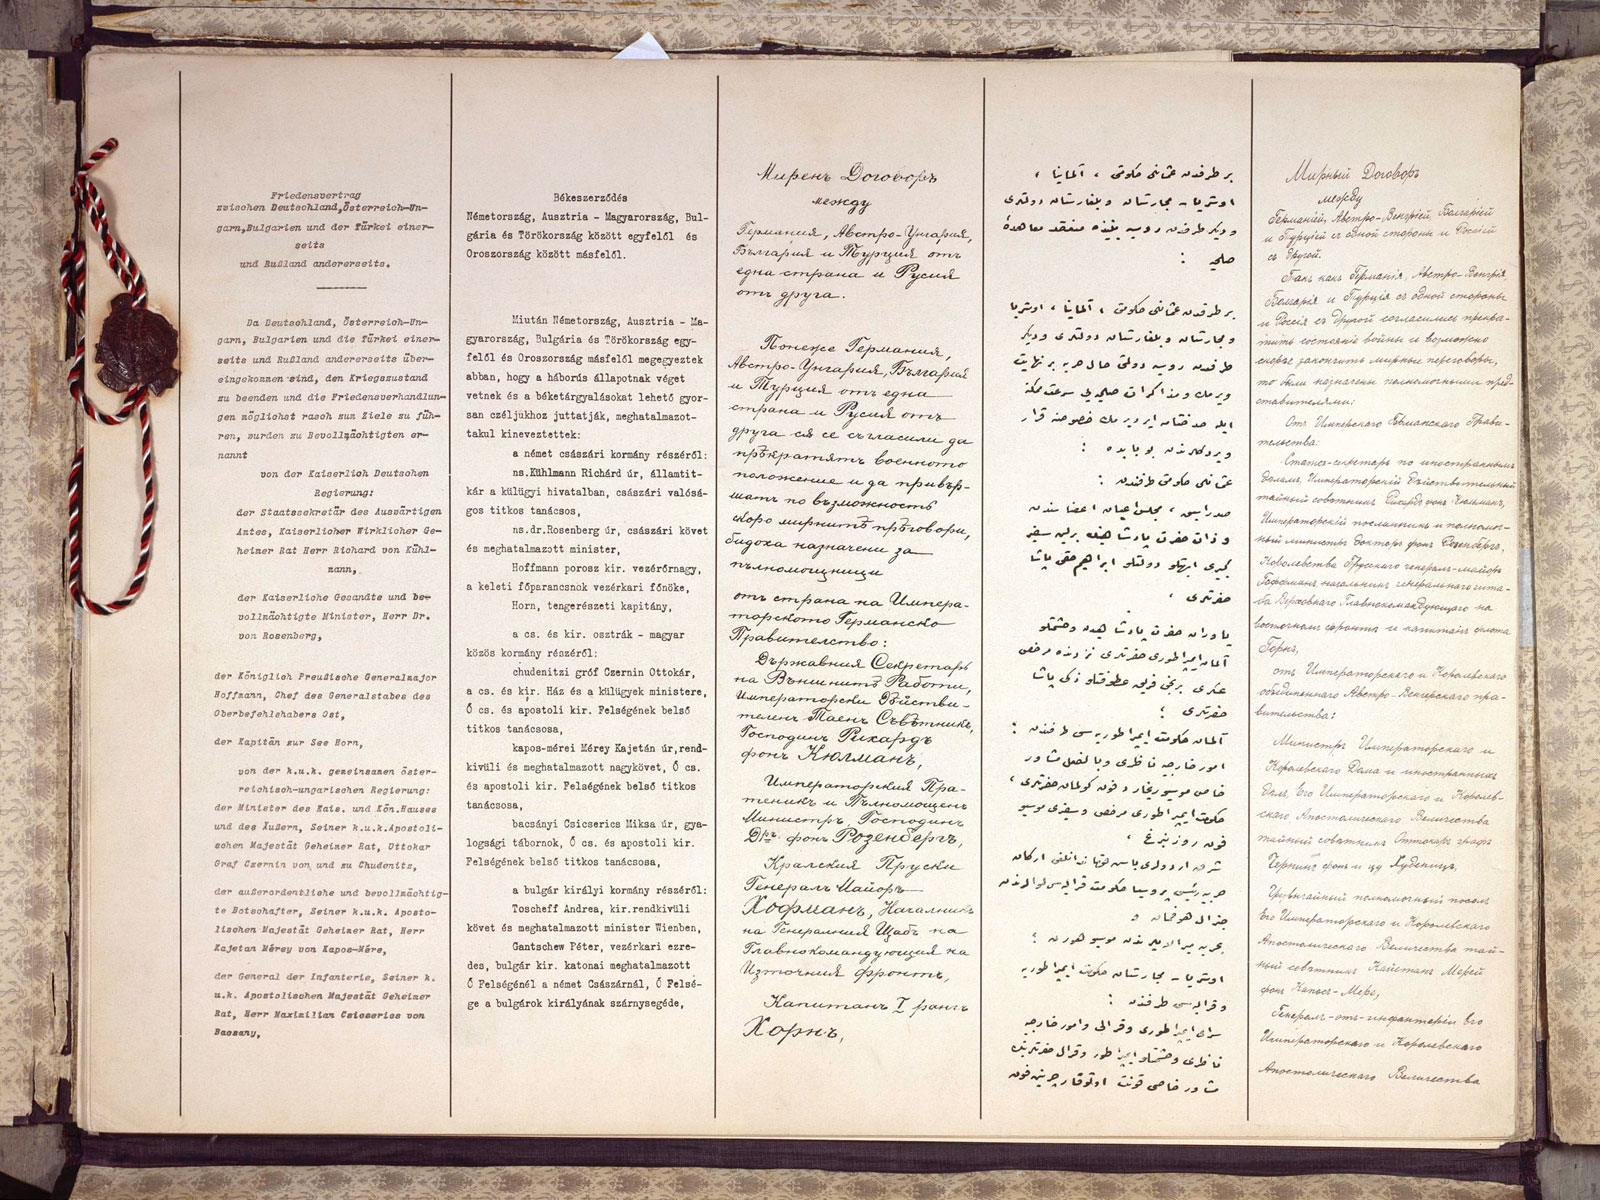 Friedensvertrag
zwischen Deutschland,Österreich-Un-
garn,Bulgarien und der Türkei einer-
seits
und Rußland andererseits.
Da Deutschland, Österreich-Un-
garn, Bulgarien und die Türkei einer-
seits und Rußland andererseits über-
eingekommen sind, den Kriegszustand
zu beenden und die Friedensverhandlun-
gen möglichst rasch zum Ziele zu füh-
ren, wurden zu Bevollmächtigten er-
nannt
von der Kaiserlich Deutschen
Regierung:
der Staatssekretär des Auswärtigen
Amtes, Kaiserlicher Wirklicher Ge-
heimer Rat Herr Richard von Kühl-
mann,
der Kaiserliche Gesandte und be-
vollmächtigte Minister, Herr Dr.
von Rosenberg,
der Königlich Preußische Generalmajor
Hoffmann, Chef des Generalstabes des
Oberbefehlshabers Ost,
der Kapitän zur See Horn,
von der k.u.k. gemeinsamen öster-
reichisch-ungarischen Regierung:
der Minister des Kais. und Kön.Hauses
und des Äußern, Seiner k.u.k.Apostoli-
schen Majestät Geheimer Rat, Ottokar
Graf Czernin von und zu Chudenitz,
der außerordentliche und bevollmächtig-
te Botschafter, Seiner k.u.k. Aposto-
lischen Majestät Geheimer Rat, Herr
Kajetan Mérey von Kapos-Mére,
der General der Infanterie, Seiner k.
u.k. Apostolischen Majestät Geheimer
Rat, Herr Maximilian Csicserics von
Bacsany,
Békeszerződés
Németország, Ausztria - Magyarország, Bul-
gária és Törökország között egyfelől és
Oroszország között másfelől.
Miután Németország, Ausztria - Ma-
gyarország, Bulgária és Törökország egy-
felől és Oroszország másfelől megegyeztek
abban, hogy a háborús állapotnak véget
vetnek és a béketárgyalásokat lehető gyor-
san czéljukhoz juttatják, meghatalmazot-
takul kineveztettek:
a német császári kormány részéről:
ns.Kühlmann Richárd úr, államtit-
kár a külügyi hivatalban, császári valósá-
gos titkos tanácsos,
ns.dr.Rosenberg úr, császári követ
és meghatalmazott minister,
Hoffmann porosz kir. vezérőrnagy,
a keleti főparancsnok vezérkari főnöke,
Horn, tengerészeti kapitány,
a cs. és kir. osztrák - magyar
közös kormány részéről:
chudenitzi gróf Czernin Ottokár,
a cs. és kir. Ház és a külügyek ministere,
Ő cs. és apostoli kir. Felségének belső
titkos tanácsosa,
kapos-mérei Mérey Kajetán úr,rend-
kivüli és meghatalmazott nagykövet, Ő cs.
és apostoli kir. Felségének belső titkos
tanácsosa,
bacsányi Csicserics Miksa úr, gya-
logsági tábornok, Ő cs. és apostoli kir.
Felségének belső titkos tanácsosa,
a bulgár királyi kormány részéről:
Toscheff Andrea, kir.rendkivüli
követ és meghatalmazott minister Wienben,
Gantschew Péter, vezérkari ezre-
des, bulgár kir. katonai meghatalmazott
Ő Felségénél a német Császárnál, Ő Felsé-
ge a bulgárok királyának szárnysegéde,
Миренъ Договоръ
между
Германия, Австро-Унгария,
България и Турция отъ
една страна и Русия
отъ друга.
Понеже Германия,
Австро-Унгария, България
и Турция отъ една
страна и Русия отъ
друга ся се съгласили да
прѣкратятъ военното
положение и да привър-
шатъ по възможность
скоро мирнитѣ прѣговори,
бидоха назначени за
пълномощници
отъ страна на Импера-
торското Германско
Правителство:
Държавния Секретарь
на Външнитѣ Работи,
Императорски Дѣйстви-
теленъ Таенъ Съвѣтникъ,
Господинъ Рихардъ
фонъ Кюлманъ,
Императорския Пра-
теникъ и Пълномощенъ
Министръ, Господинъ
Д-ръ фонъ Розенбергъ,
Кралския Пруски
Генералъ Майоръ
Хофманъ, Началникъ
на Генералния Щабъ на
Главнокомандующия на
Източния фронтъ,
Капитанъ I рангъ
Хорнъ,
بر طرفدن عثمانلی حكومتی ، آلمانیا ،
اوستریا - مجارستان و بلغارستان دولتلری
و دیكر طرفدن روسیه بیننده منعقد معاهدۀ
صلحیه :
بر طرفدن عثمانلی حكومتی ، آلمانیا ، اوستریا
و مجارستان و بلغارستان دولتلری و دیكر
طرفدن روسیه دولتی حال حربه بر نهایت
ویرمك و مذاكرات صلحیه یی سرعت ممكنه
ایله
عثمانلی حكومتی طرفندن :
صدر اسبق ، مجلس اعیان اعضاسندن
و ذات حضرت پادشاهینك برلین سفیر
كبیری ابهتلو دولتلو ابراهیم حقی پاشا
حضرتلری ،
یاوران حضرت پادشاهیدن و حشمتلو
آلمانیا ایمپراطوری حضرتلری نزدنده مرخص
عسكری برنجی فریق عطوفتلو زكی پاشا
حضرتلری ؛
آلمان حكومت ایمپراطوریه سی طرفندن :
امور خارجیه ناظری و بالفعل مشاور
خاص موسیو ریخارد فون كولمان حضرتلری ،
حكومت ایمپراطوری مرخصی و سفیری موسیو
فون روزنبرغ ،
جنرال هوفمان و
بحریه میرالایلرندن موسیو هورن ؛
اوستریا - مجارستان حكومت ایمپراطوریه
و قرالیه سی طرفندن :
سرای ایمپراطوری و قرالی و امور خارجیه
ناظری و حشمتلو ایمپراطور و قرال حضرتلرینك
مشاور خاصی قونت اوتوقار چرنین فون
Мирный Договоръ
между
Германіей, Австро-Венгріей, Болгаріей
и Турціей съ одной стороны и Россіей
съ другой.
Такъ какъ Германія, Австро-Венгрія,
Болгарія и Турція съ одной стороны
и Россія съ другой согласились прекра-
тить состояніе войны и возможно
скорѣе закончить мирные переговоры,
то были назначены полномочными пред-
ставителями:
Отъ Имперскаго Германскаго Прави-
тельства:
Статсъ-секретарь по иностраннымъ
дѣламъ, Императорскій Дѣйствительный
тайный совѣтникъ Рихардъ фонъ Кюльманъ,
Императорскій посланникъ и полномоч-
ный министръ докторъ фонъ Розенбергъ,
Королевства Прусскаго генералъ-майоръ
Гоффманъ, начальникъ генеральнаго шта-
ба Верховнаго Главнокомандующаго на
восточномъ фронтѣ и капитанъ флота
Горнъ,
отъ Императорскаго и Королевскаго
объединеннаго Австро-Венгерскаго пра-
вительства:
Министръ Императорскаго и
Королевскаго Дома и иностранныхъ
дѣлъ, Его Императорскаго и Королев-
скаго Апостолическаго Величества
тайный совѣтникъ Оттокаръ графъ
Чернинъ фонъ и цу Худеницъ,
Чрезвычайный полномочный посолъ
Его Императорскаго и Королевскаго
Апостолическаго Величества тай-
ный совѣтникъ Кайетанъ Мерей
фонъ Капосъ-Мере,
Генералъ-отъ-инфантеріи Его
Императорскаго и Королевскаго
Апостолическаго Величества